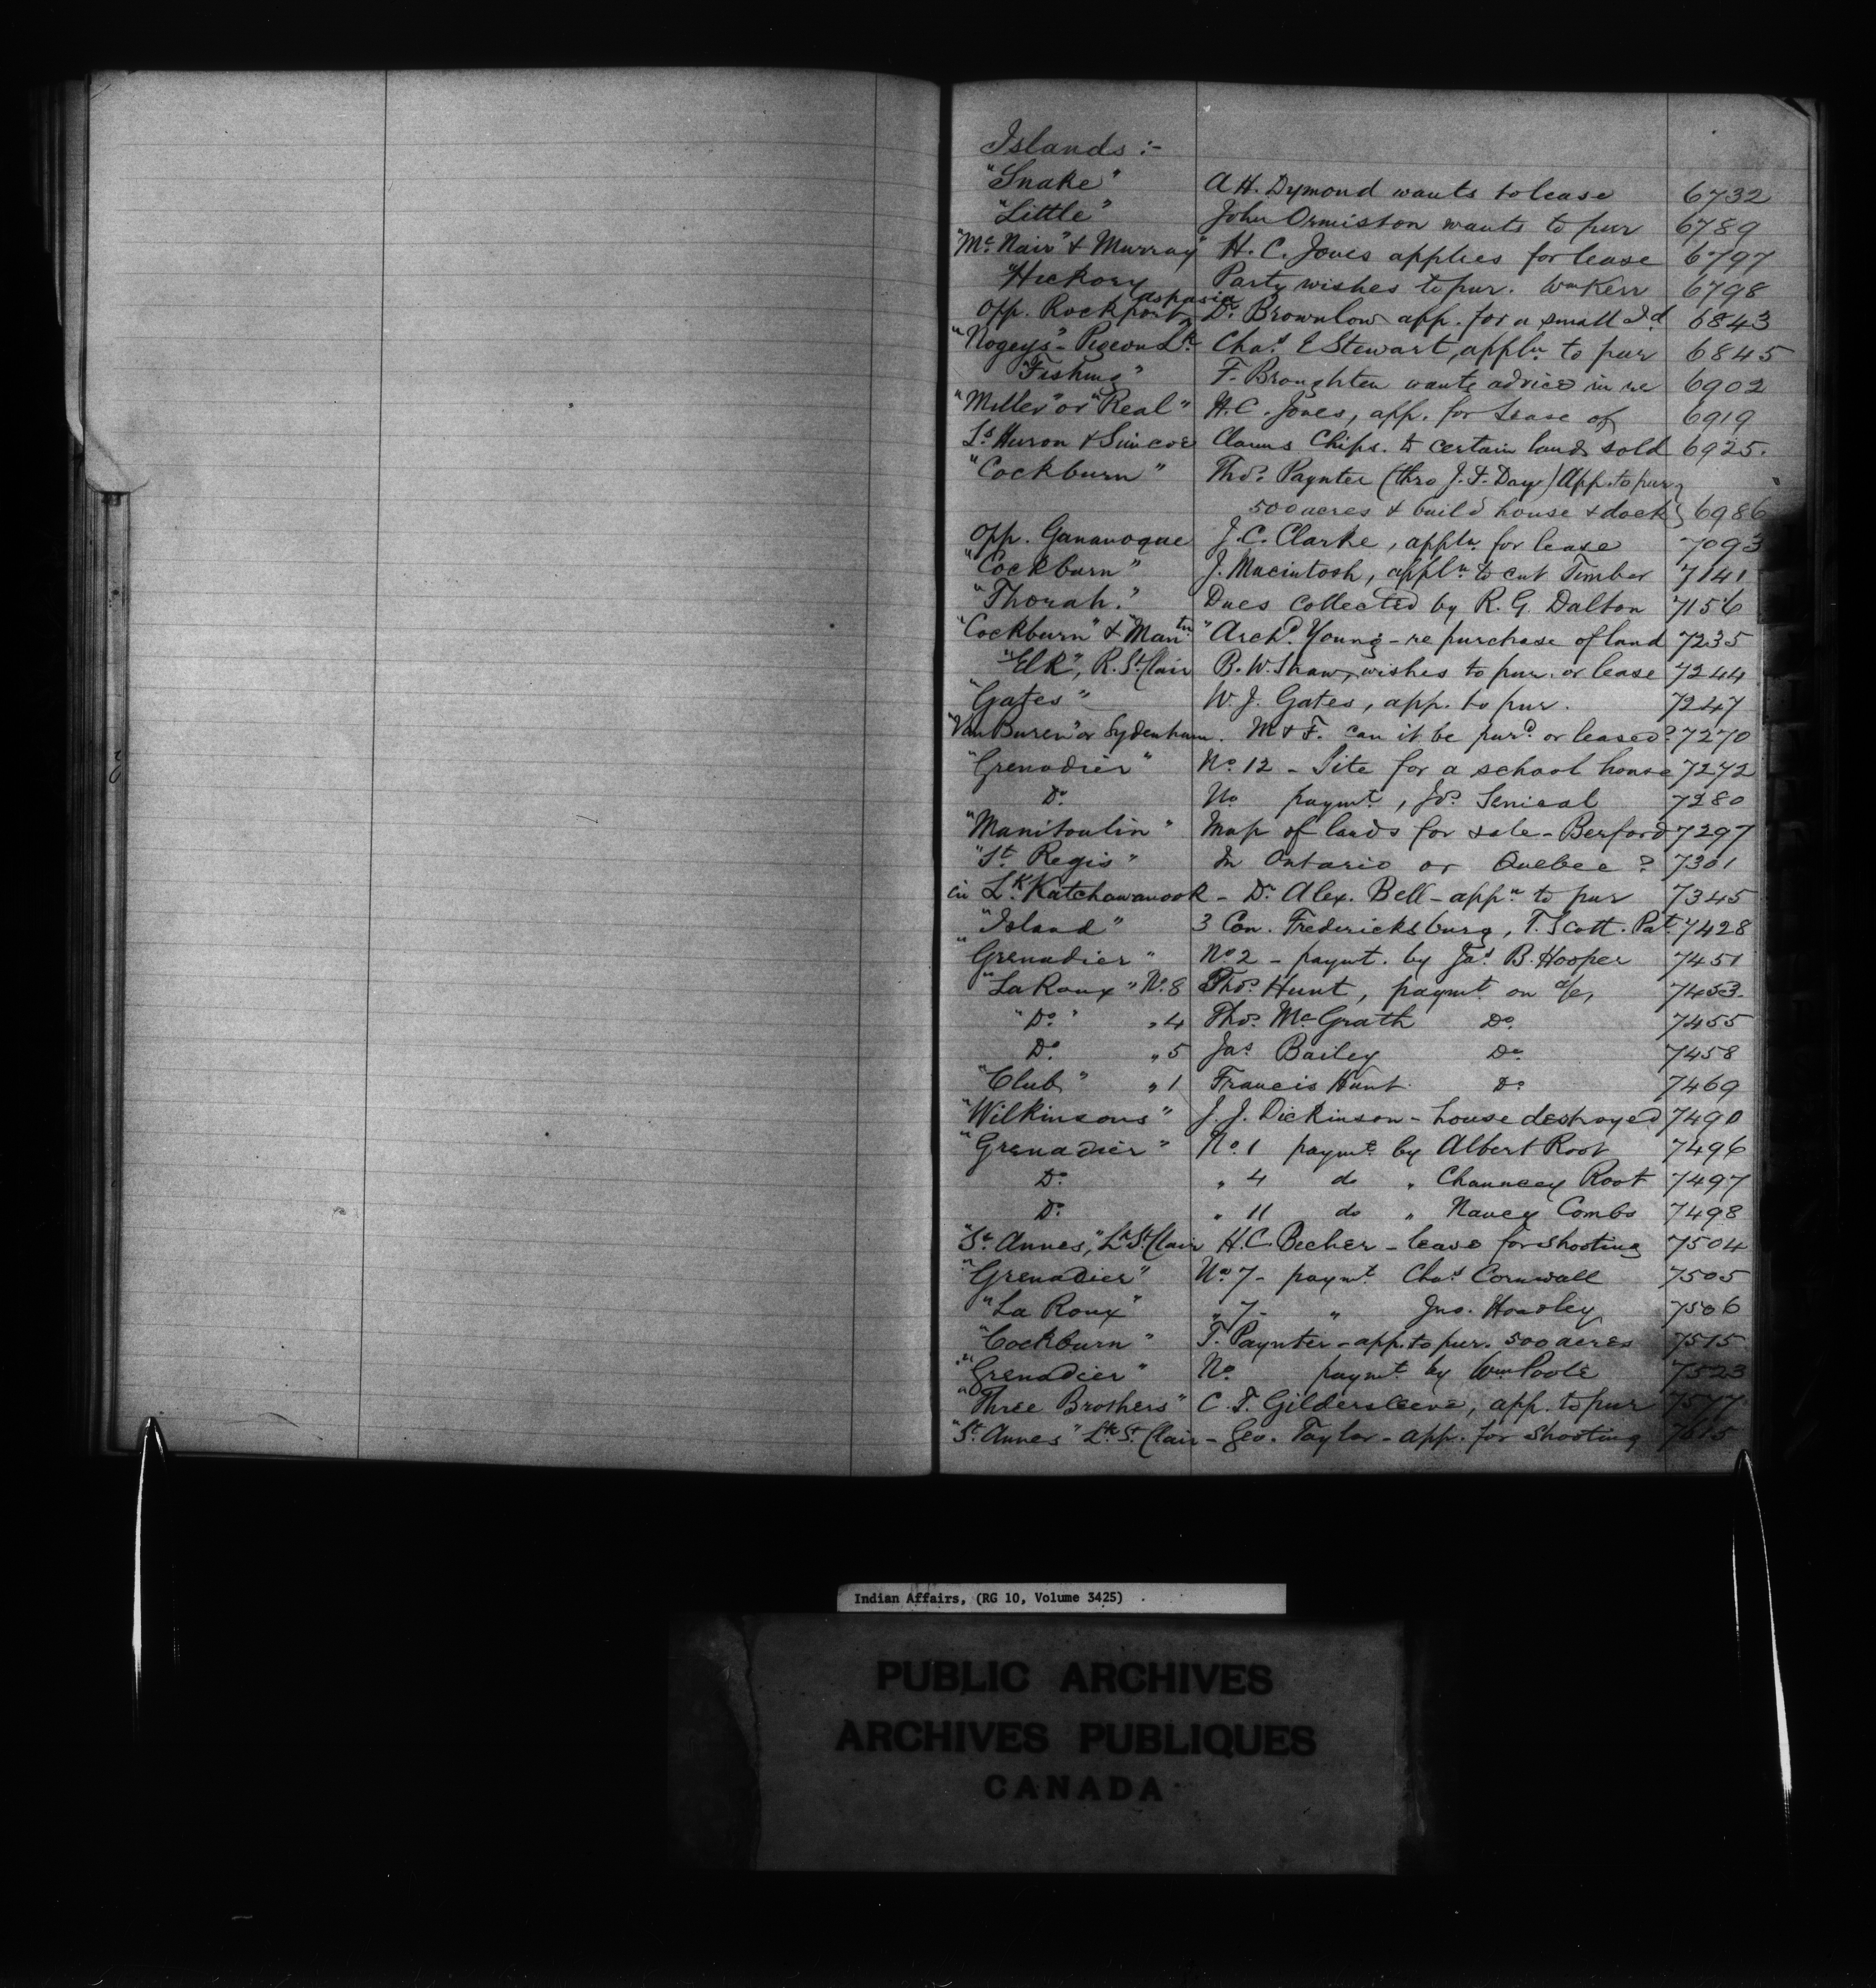 Islands :-
"Snake" A H. Dymond wants to lease 6732
"Little" John Ormiston wants to pur 6789
"Mc. Nair" & Murray" H. C. Jones applies for lease 6797
"Hickory Party wishes to pur. Wm Kerr 6798
aspasia
Opp. Rockport Dr. Brownlow app. for a small Id. 6843
"Nogeys"- Pigeon Lk. Chas. E Stewart, appln to pur 6845
"Fishing" F. Broughten wants advice in re 6902
"Miller" or "Real" H.C. Jones, app. for Lease of 6919
Ls. Huron & Simcoe Claims Chips. to certain lands sold 6925.
"Cockburn" Thos. Paynter (thro J. F. Day) App. to pur
500 acres & build house & dock} 6986
Opp. Gananoque J.C. Clarke, appln. for lease 7093
"Cockburn" J. Macintosh, appln. to cut Timber 7141
"Thorah." Dues collected by R. G. Dalton 7156
"Cockburn" & "Mantn." Archd. Young - re purchase of land 7235
"Elk", R. St. Clair B. W. Shaw, wishes to pur. or lease 7244
"Gates" W. J. Gates, app. to pur. 7247
"Van Buren" or Sydenham. M & F. can it be purd. or leased? 7270
"Grenadier" No. 12 - Site for a school house 7272
Do. No paymt., Jos. Senical 7280
"Manitoulin" Map of lands for sale - Berford 7297
"St. Regis" In Ontario or Quebec? 7301
in Lk. Katchawanook - Dr. Alex. Bell - appn to pur 7345
"Island" 3 Con. Fredericksburg, T. Scott. Pat. 7428
"Grenadier" No. 2 - paymt. by Jas. B. Hooper 7451
"La Roux" No. 8 Thos. Hunt, paymt. on a/c, 7453.
"Do." " 4 Thos. McGrath Do. 7455
Do. " 5 Jas. Bailey Do. 7458
"Club" " 1 Francis Hunt. Do. 7469
"Wilkinsons" J. J. Dickinson - house destroyed 7490
"Grenadier" No. 1 paymt. by Albert Root 7496
Do. " 4 do " Chauncey Root 7497
Do. " 11 do " Nancy Combs 7498
"St. Annes," Lk St. Clair H.C. Becher - lease for shooting 7504
"Grenadier" No. 7 - paymt. Chas. Cornwall 7505
"La Roux" " 7 - " Jno. Hoadley 7506
"Cockburn" T. Paynter - app. to pur. 500 acres 7515
"Grenadier" No. paymt. by Wm Poole 7523
"Three Brothers" C. F. Gildersleeve, app. to pur 7577
"St. Annes" Lk St. Clair - Geo. Taylor - app. for shooting 7615
Indian Affairs, (RG 10, Volume 3425)
PUBLIC ARCHIVES
ARCHIVES PUBLIQUES
CANADA